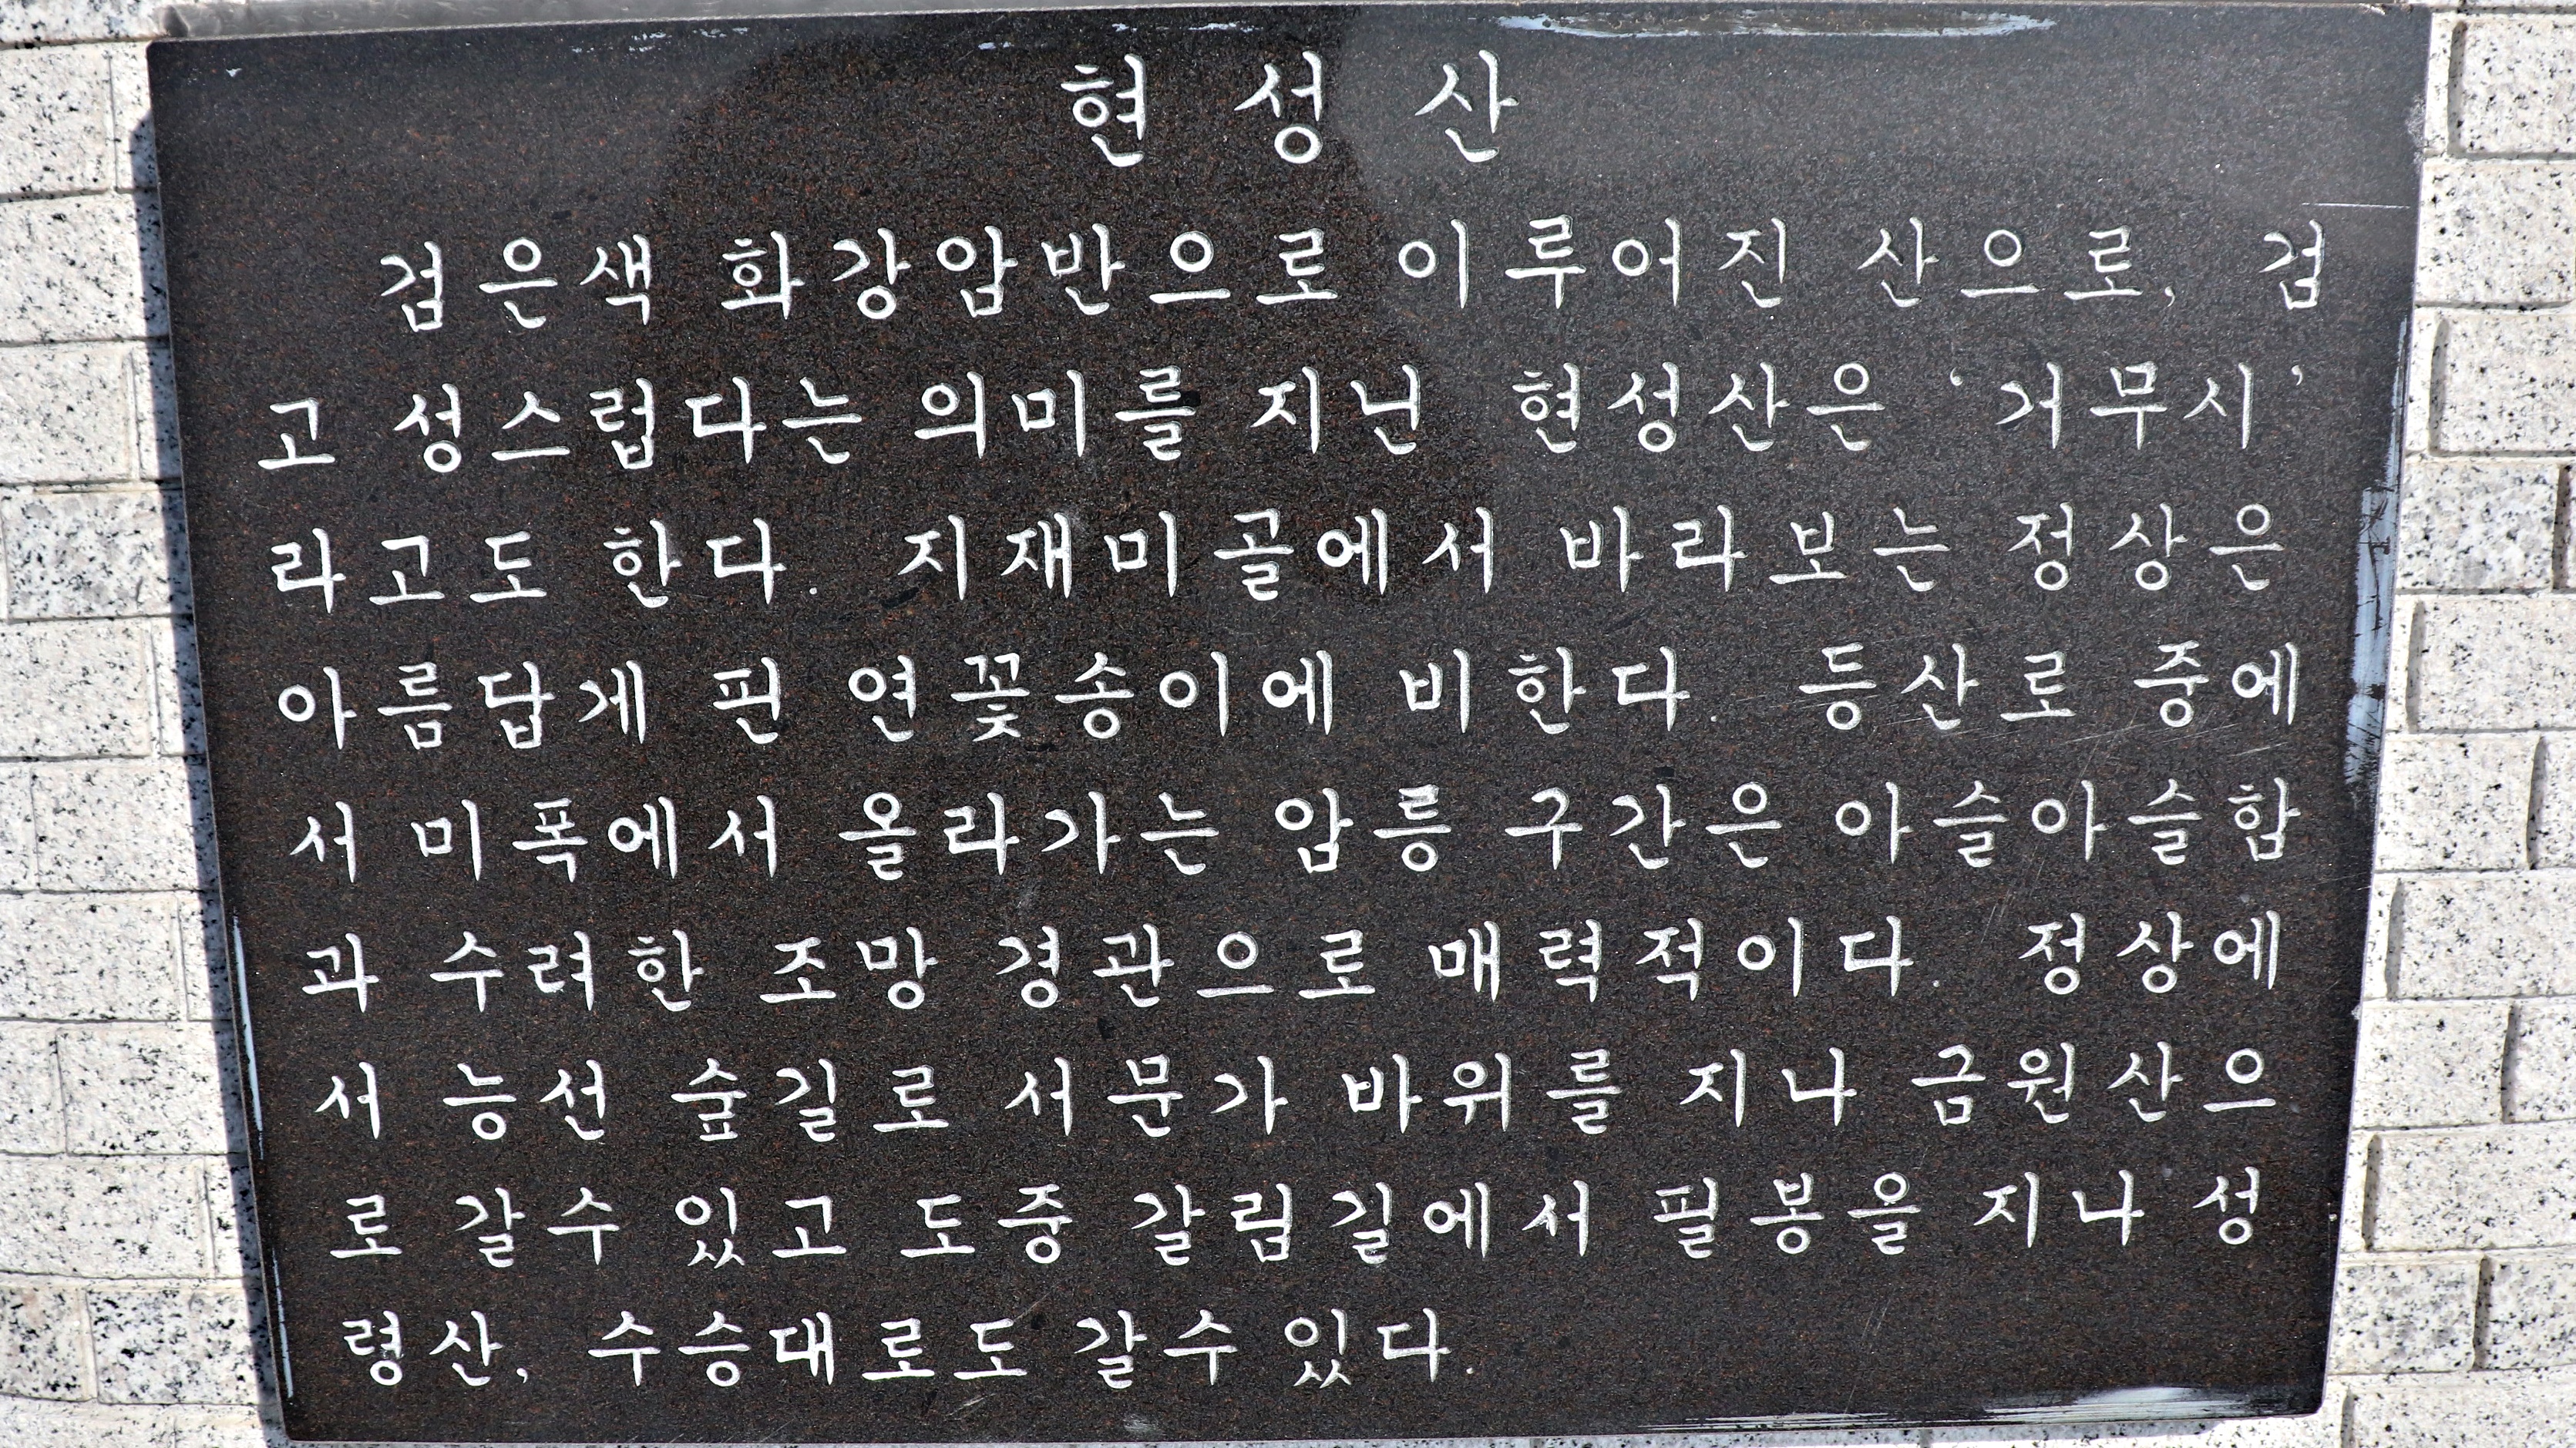 현 성 산
검은색 화강암반으로 이루어진 산으로, 검
고 성스럽다는 의미를 지닌 현성산은 '거무시'
라고도 한다. 지재미골에서 바라보는 정상은
아름답게 핀 연꽃송이에 비한다. 등산로 중에
서 미폭에서 올라가는 암릉 구간은 아슬아슬함
과 수려한 조망 경관으로 매력적이다. 정상에
서 능선 숲길로 서문가 바위를 지나 금원산으
로 갈수 있고 도중 갈림길에서 필봉을 지나 성
령산, 수승대로도 갈수 있다.